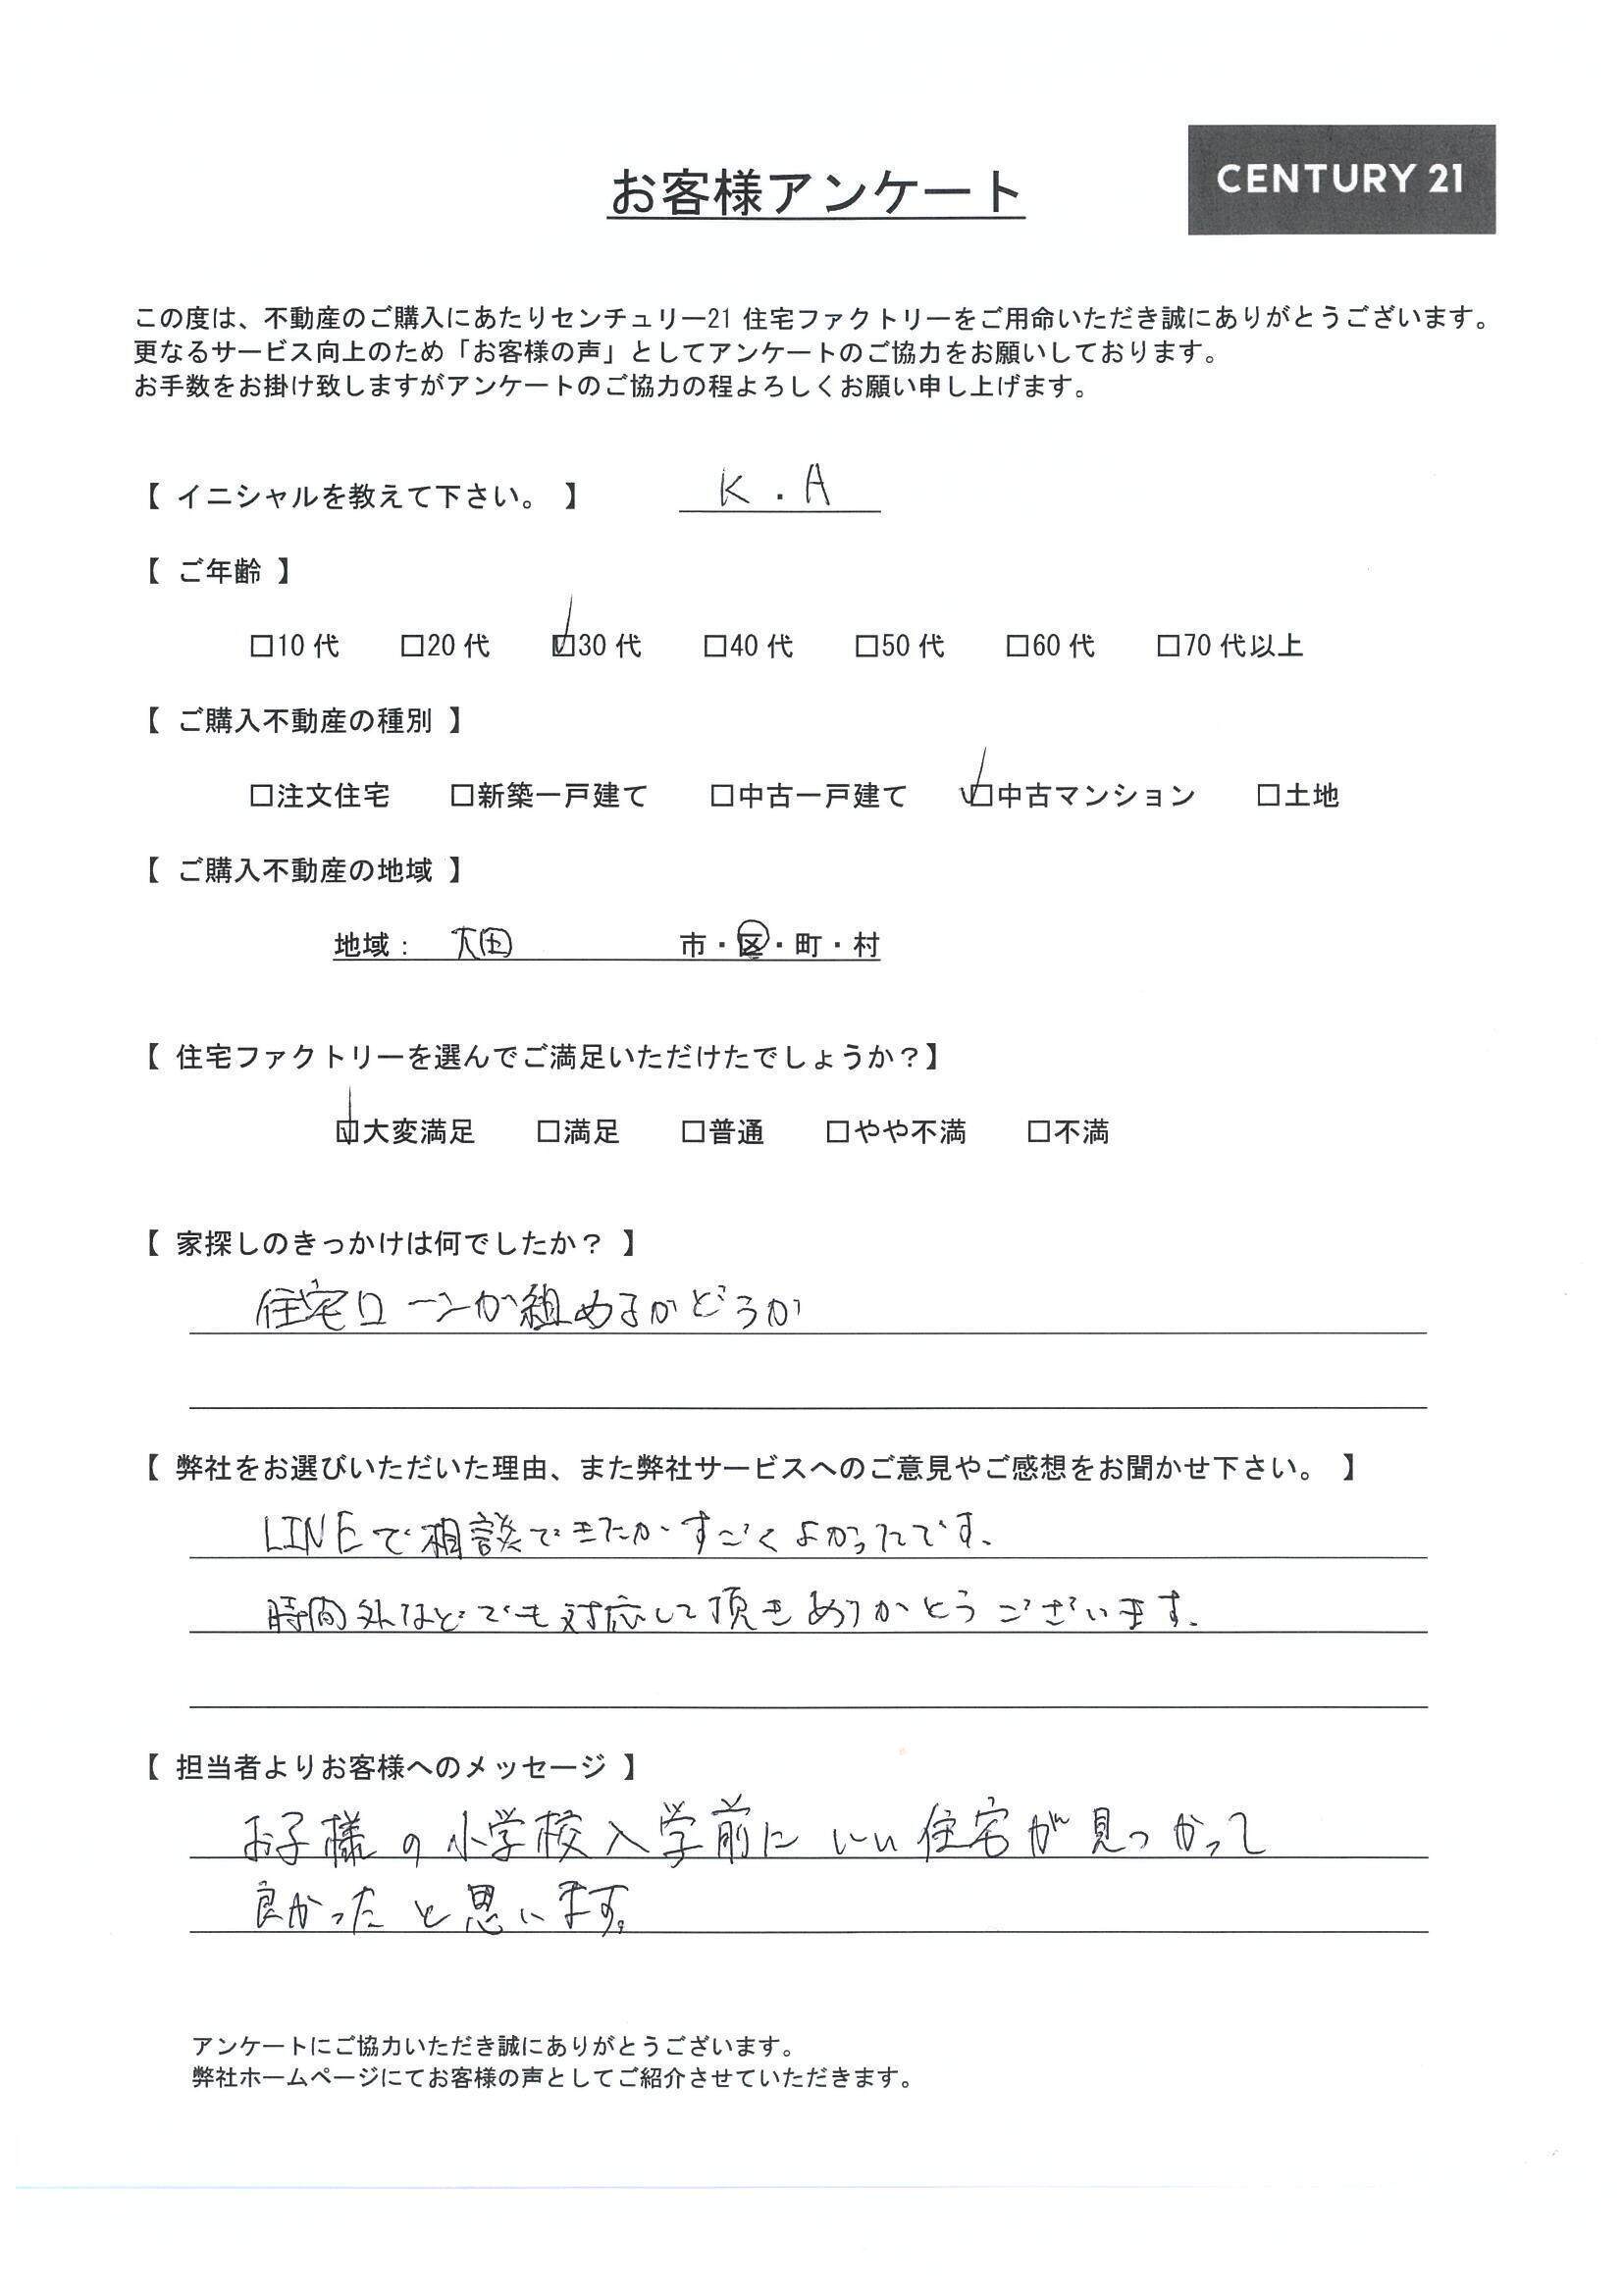 CENTURY 21
お客様アンケート
この度は、不動産のご購入にあたりセンチュリー21 住宅ファクトリーをご用命いただき誠にありがとうございます。
更なるサービス向上のため「お客様の声」としてアンケートのご協力をお願いしております。
お手数をお掛け致しますがアンケートのご協力の程よろしくお願い申し上げます。
【 イニシャルを教えて下さい。 】 K.A
【 ご年齢 】
□10代 □20代 ☑30代 □40代 □50代 □60代 □70代以上
【 ご購入不動産の種別 】
□注文住宅 □新築一戸建て □中古一戸建て ☑中古マンション □土地
【 ご購入不動産の地域 】
地域： 大田 市・区・町・村
【 住宅ファクトリーを選んでご満足いただけたでしょうか？】
☑大変満足 □満足 □普通 □やや不満 □不満
【 家探しのきっかけは何でしたか？ 】
住宅ローンが組めるかどうか
【 弊社をお選びいただいた理由、また弊社サービスへのご意見やご感想をお聞かせ下さい。 】
LINEで相談できたがすごくよかったです。
時間外などでも対応して頂きありがとうございます。
【 担当者よりお客様へのメッセージ 】
お子様の小学校入学前にいい住宅が見つかって
良かったと思います。
アンケートにご協力いただき誠にありがとうございます。
弊社ホームページにてお客様の声としてご紹介させていただきます。